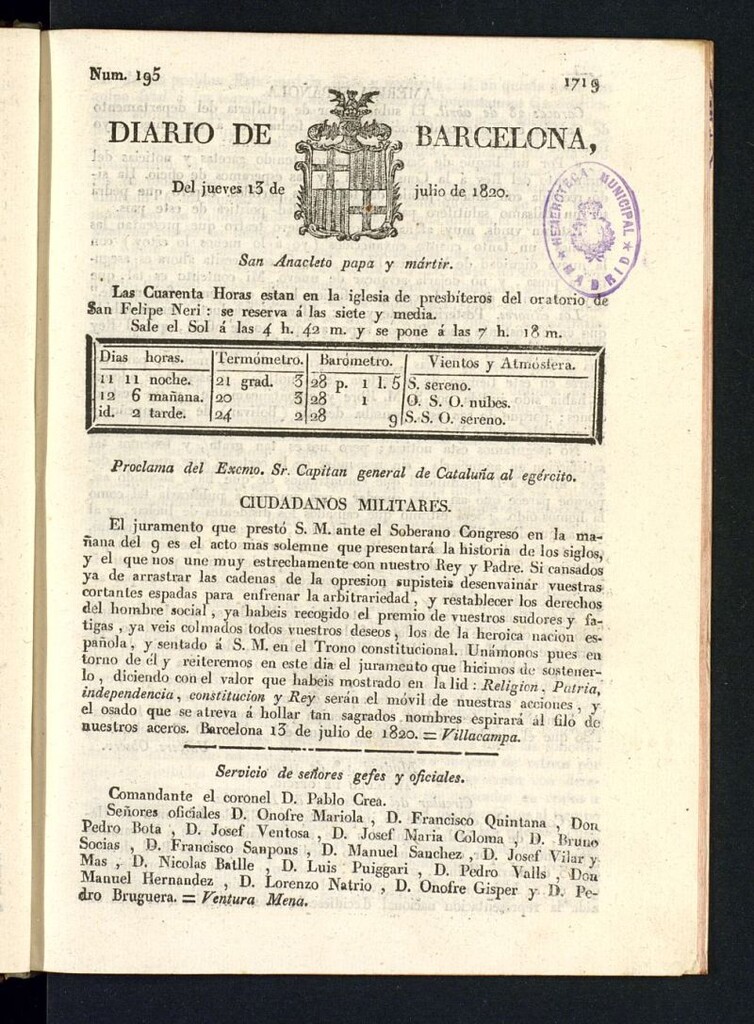 Num. 195
1719
DIARIO DE BARCELONA,
Del jueves 13 de julio de 1820.
HEMEROTECA MUNICIPAL
MADRID
San Anacleto papa y mártir.
Las Cuarenta Horas estan en la iglesia de presbíteros del oratorio de
San Felipe Neri : se reserva á las siete y media.
Sale el Sol á las 4 h. 42 m. y se pone á las 7 h. 18 m.
Dias horas. Termómetro. Barómetro. Vientos y Atmósfera.
11 11 noche. 21 grad. 3 28 p. 1 l. 5 S. sereno.
12 6 mañana. 20 3 28 1 O. S. O. nubes.
id. 2 tarde. 24 2 28 9 S. S. O. sereno.
Proclama del Excmo. Sr. Capitan general de Cataluña al egército.
CIUDADANOS MILITARES.
El juramento que prestó S. M. ante el Soberano Congreso en la ma-
ñana del 9 es el acto mas solemne que presentará la historia de los siglos,
y el que nos une muy estrechamente con nuestro Rey y Padre. Si cansados
ya de arrastrar las cadenas de la opresion supisteis desenvainar vuestras
cortantes espadas para enfrenar la arbitrariedad, y restablecer los derechos
del hombre social, ya habeis recogido el premio de vuestros sudores y fa-
tigas, ya veis colmados todos vuestros deseos, los de la heroica nacion es-
pañola, y sentado á S. M. en el Trono constitucional. Unámonos pues en
torno de él y reiteremos en este dia el juramento que hicimos de sostener-
lo, diciendo con el valor que habeis mostrado en la lid : Religion, Patria,
independencia, constitucion y Rey serán el móvil de nuestras acciones, y
el osado que se atreva á hollar tan sagrados nombres espirará al filo de
nuestros aceros. Barcelona 13 de julio de 1820. = Villacampa.
Servicio de señores gefes y oficiales.
Comandante el coronel D. Pablo Crea.
Señores oficiales D. Onofre Mariola, D. Francisco Quintana, Don
Pedro Bota, D. Josef Ventosa, D. Josef Maria Coloma, D. Bruno
Socias, D. Francisco Sanpons, D. Manuel Sanchez, D. Josef Vilar y
Mas, D. Nicolas Batlle, D. Luis Puiggari, D. Pedro Valls, Don
Manuel Hernandez, D. Lorenzo Natrio, D. Onofre Gisper y D. Pe-
dro Bruguera. = Ventura Mena.